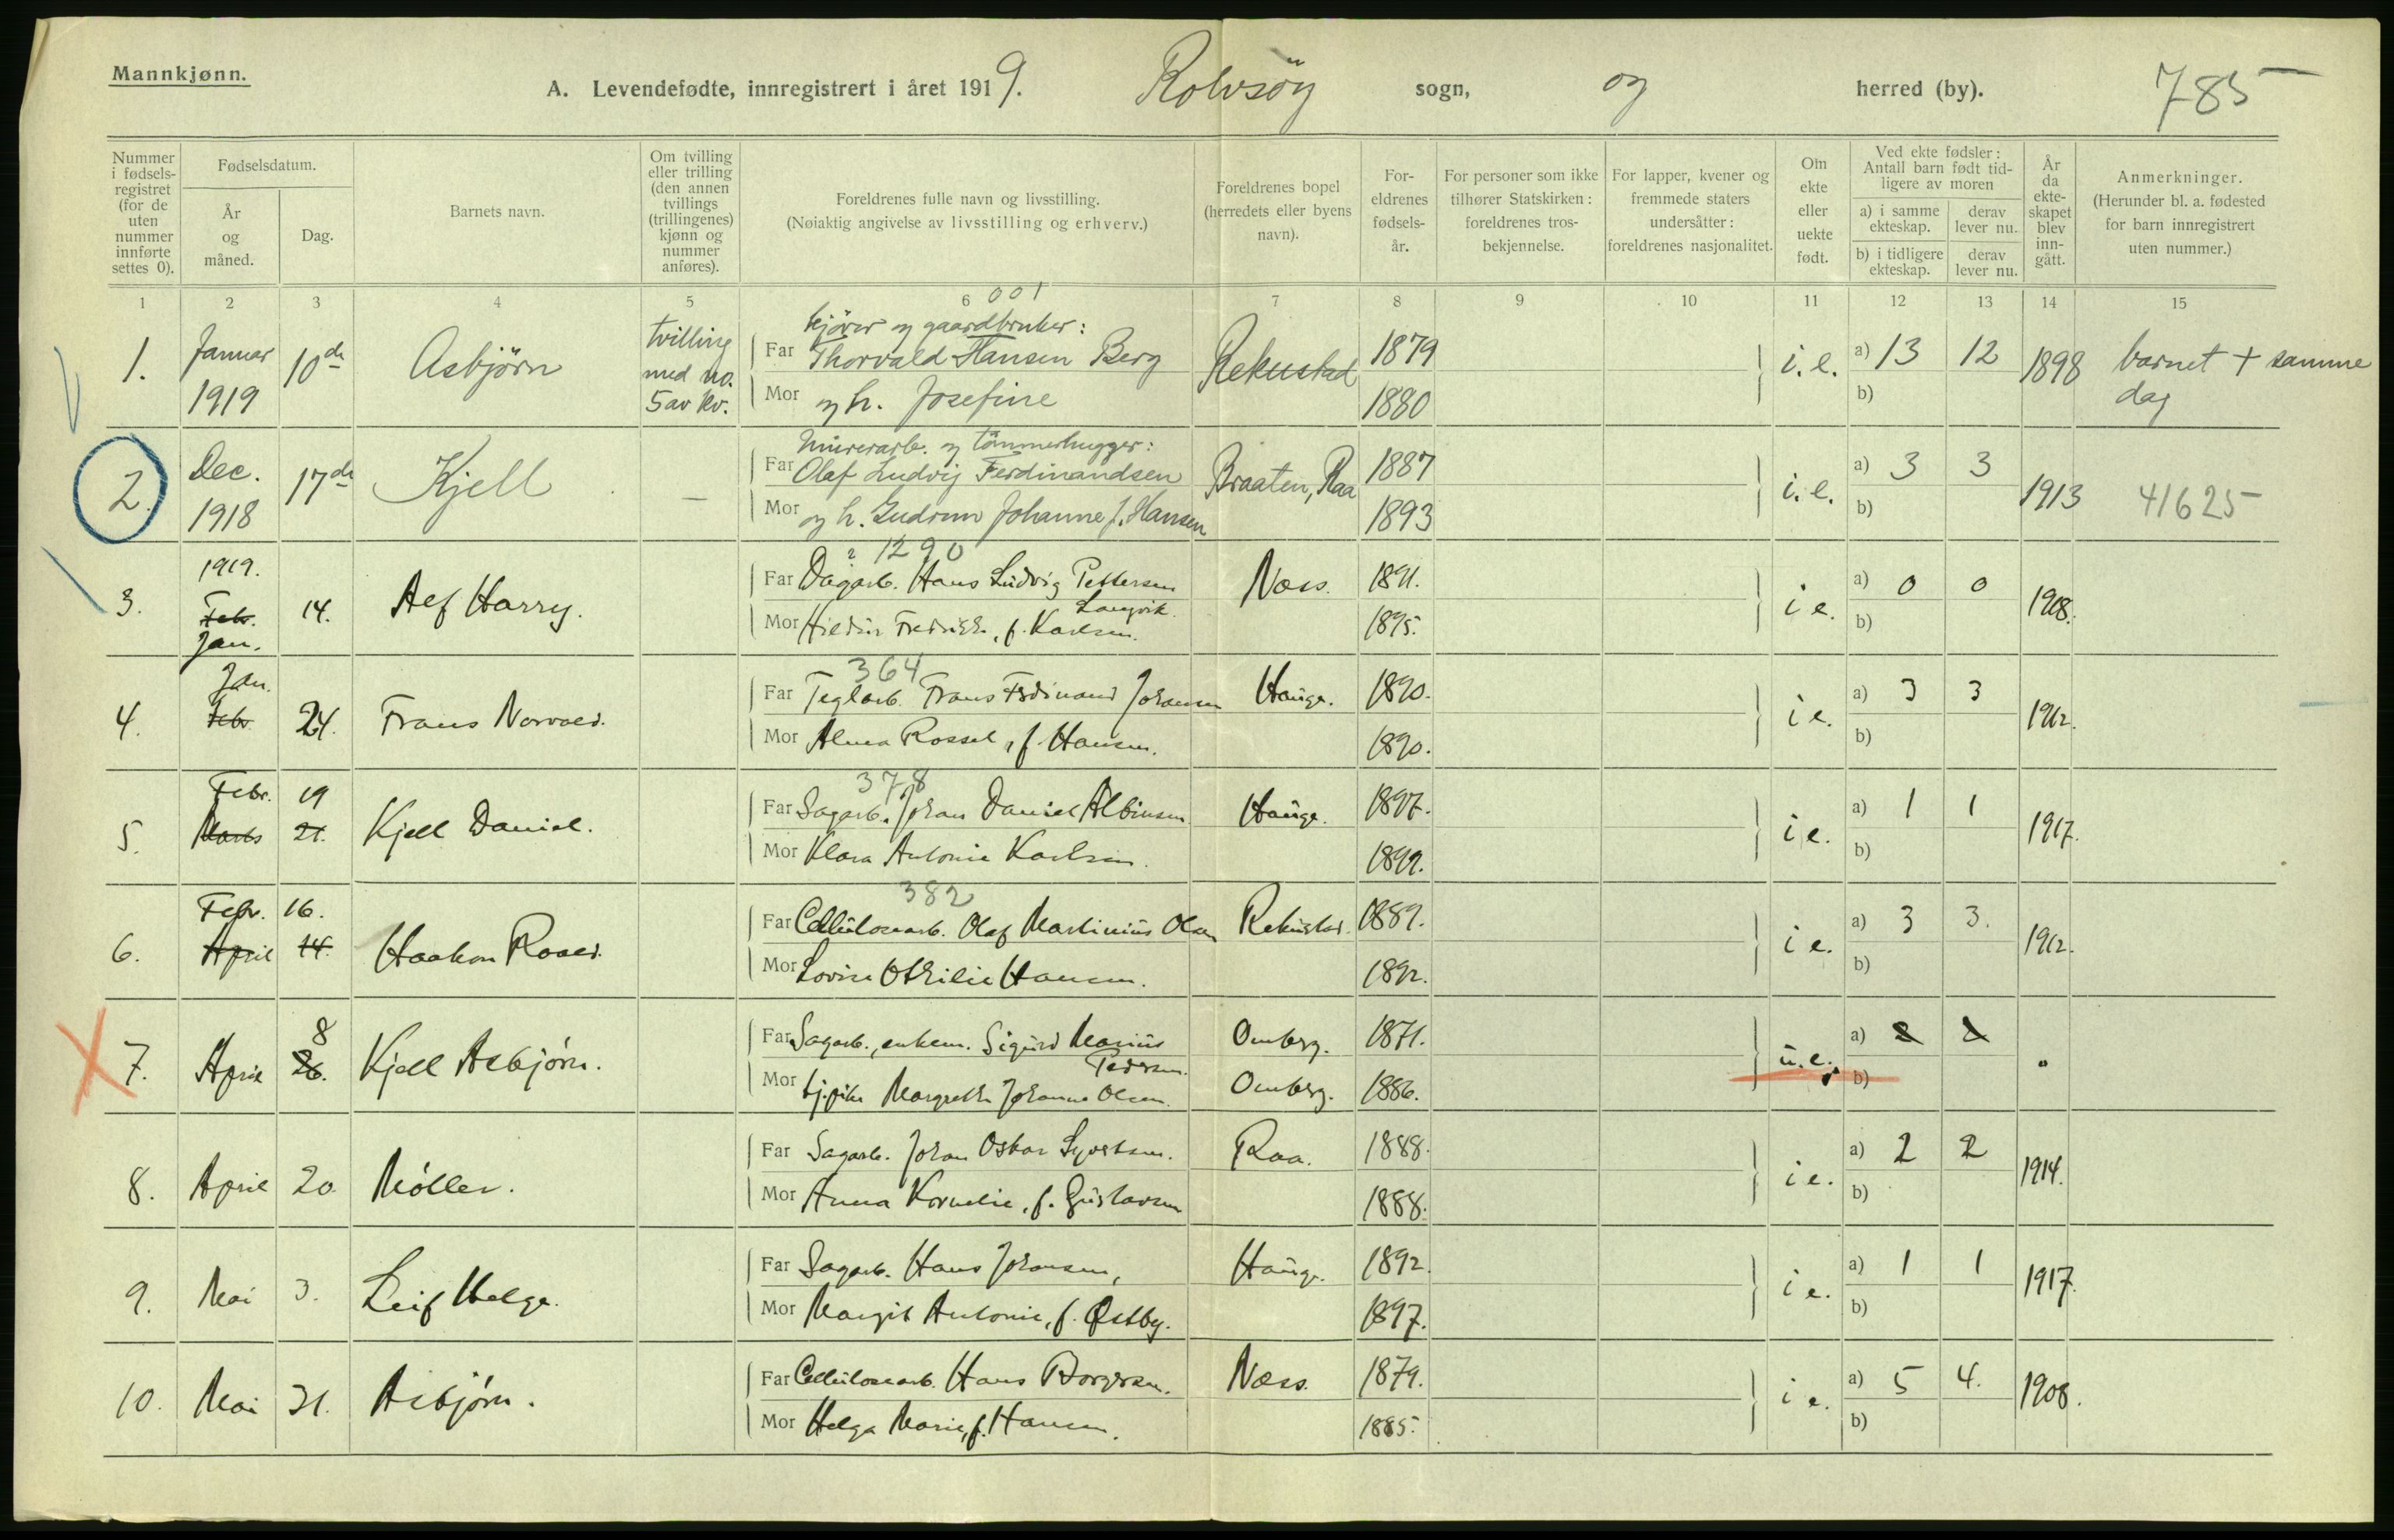 Mannkjønn.
A. Levendefødte, innregistrert i året 1919. Rolvsöy sogn, og herred (by). 785
Nummer i fødsels-registret (for de uten nummer innførte settes 0).
Fødselsdatum.
År og måned.
Dag.
Barnets navn.
Om tvilling eller trilling (den annen tvillings (trillingenes) kjønn og nummer anføres).
Foreldrenes fulle navn og livsstilling.
(Nøiaktig angivelse av livsstilling og erhverv.)
Foreldrenes bopel (herredets eller byens navn).
For-eldrenes fødsels-år.
For personer som ikke tilhører Statskirken: foreldrenes tros-bekjennelse.
For lapper, kvener og fremmede staters undersåtter: foreldrenes nasjonalitet.
Om ekte eller uekte født.
Ved ekte fødsler: Antall barn født tid-ligere av moren
a) i samme ekteskap.
derav lever nu.
b) i tidligere ekteskap.
derav lever nu.
År da ekte-skapet blev inn-gått.
Anmerkninger.
(Herunder bl. a. fødested for barn innregistrert uten nummer.)
1 2 3 4 5 6 7 8 9 10 11 12 13 14 15
001
1. Januar 1919 10de Asbjörn tvilling med no. 5 av kv.
kjörer og gaardbruker:
Far Thorvald Hansen Berg Rekustad 1879 i. e. a) 13 12 1898 barnet + samme dag
Mor og h. Josefine 1880 b)
2. Dec. 1918 17de Kjell —
Murerarb. og tömmerhugger:
Far Olaf Ludvig Ferdinandsen Braaten, Raa 1887 i. e. a) 3 3 1913 41625
Mor og h. Gudrun Johanne f. Hansen 1893 b)
1290
3. 1919. Febr. Jan. 14. Alf Harry.
Far Dagarb. Hans Ludvig Pettersen Næss. 1891. i e. a) 0 0 1918.
Langvik
Mor Fredrikke, f. Karlsen. 1895. b)
364
4. Jan. Febr 24. Frans Norvald.
Far Teglarb. Frans Ferdinand Johansen Hauge. 1890. i e. a) 3 3 1912.
Mor Alma Rossel, f. Hansen. 1890. b)
378
5. Febr. 19 Marts 21. Kjell Daniel.
Far Sagarb. Johan Daniel Albinsen Hauge. 1897. i e. a) 1 1 1917.
Mor Klara Antonie Karlsen. 1899. b)
382
6. Febr. 16. April 14. Haakon Roald.
Far Cellulosearb. Olaf Martinius Olsen Rekustad. 1889. i e. a) 3 3. 1912.
Mor Lovise Othilie Hansen. 1892. b)
7. April 8 26. Kjell Asbjórn.
Far Sagarb., enkem. Sigurd Marius Pedersen. Omberg. 1871. u. e. a)
Mor tj.pike Margrethe Johanne Olsen. Omberg. 1886. b)
8. April 20. Móller.
Far Sagarb. Johan Oskar Syvertsen. Raa. 1888. i e. a) 2 2 1914.
Mor Anna Kornelie, f. Gustavsen 1888. b)
9. Mai 3. Leif Helge.
Far Sagarb. Hans Johansen, Hauge. 1892. i e. a) 1 1 1917.
Mor Margit Antonie, f. Østby. 1897. b)
10. Mai 31. Asbjórn.
Far Cellulosearb. Hans Borgersen. Næss. 1879. i e. a) 5 4. 1908.
Mor Helga Marie, f. Hansen. 1885. b)